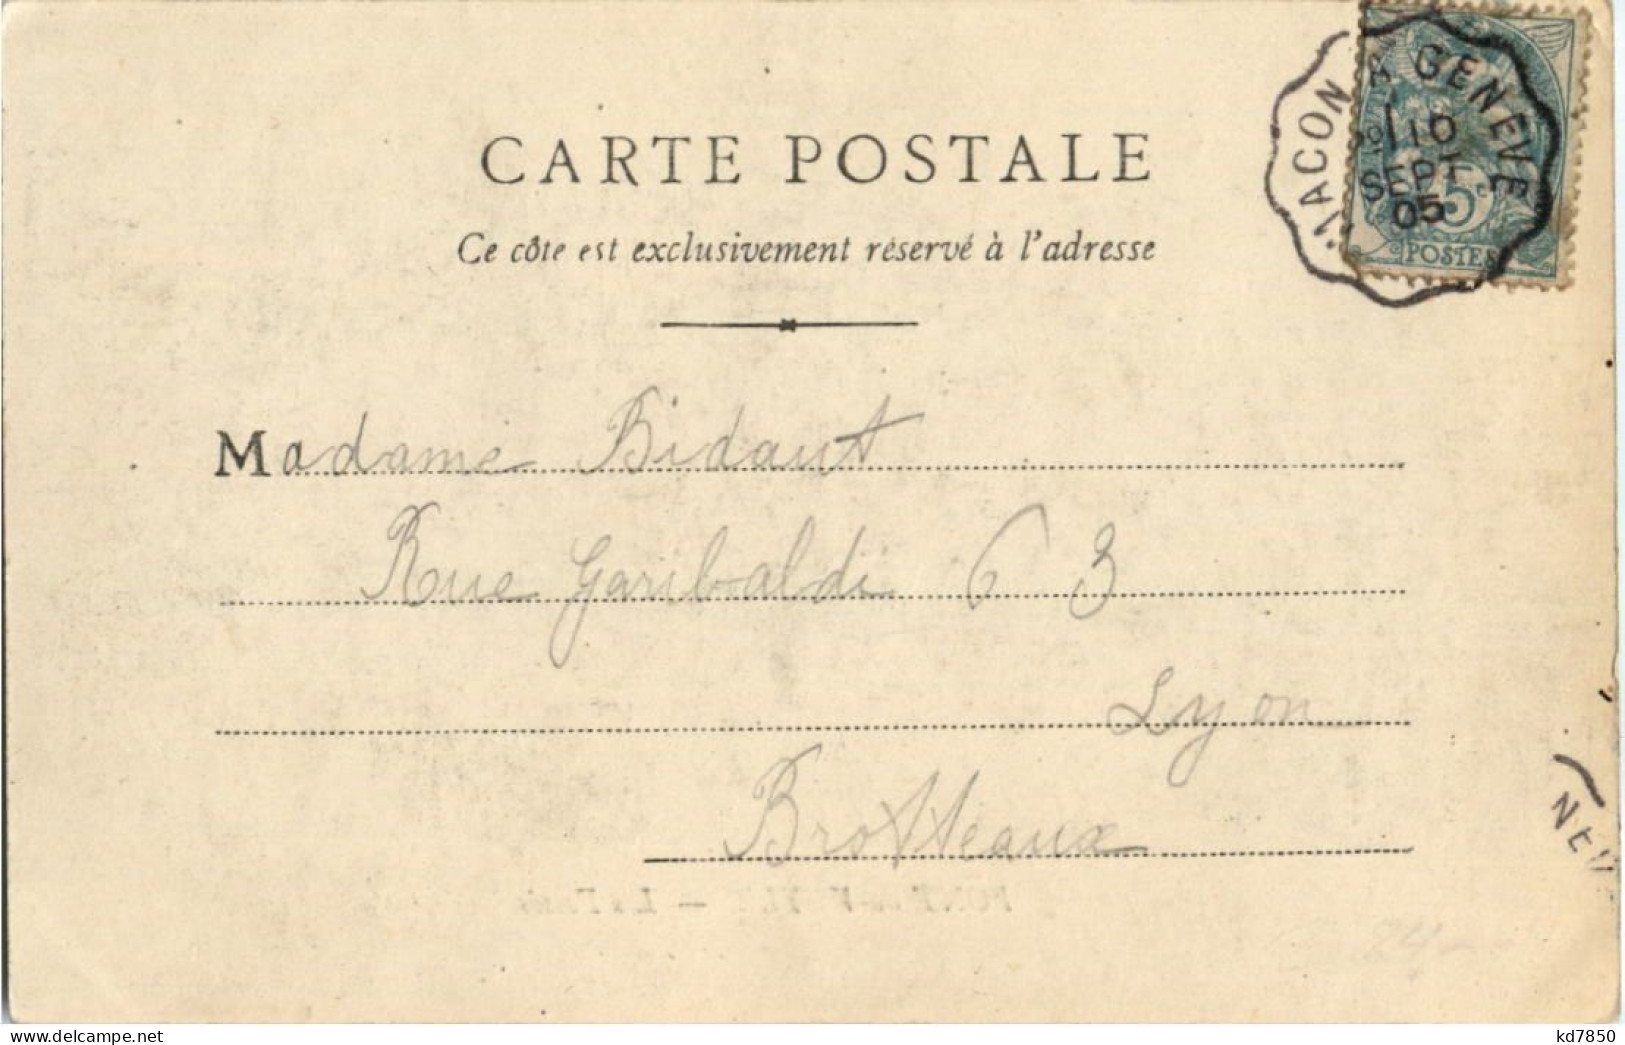 CARTE POSTALE
Ce côte est exclusivement réservé à l'adresse
MACON A GENEVE
10
SEPT
05
5c
POSTES
Madame Bidaut
Rue Garibaldi 63
Lyon
Brotteaux
NEV
24
www.delcampe.net
kd7850